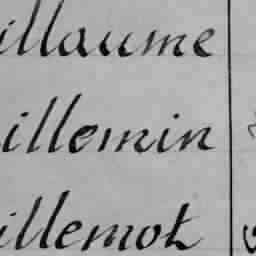 illaume
illemin
illemot